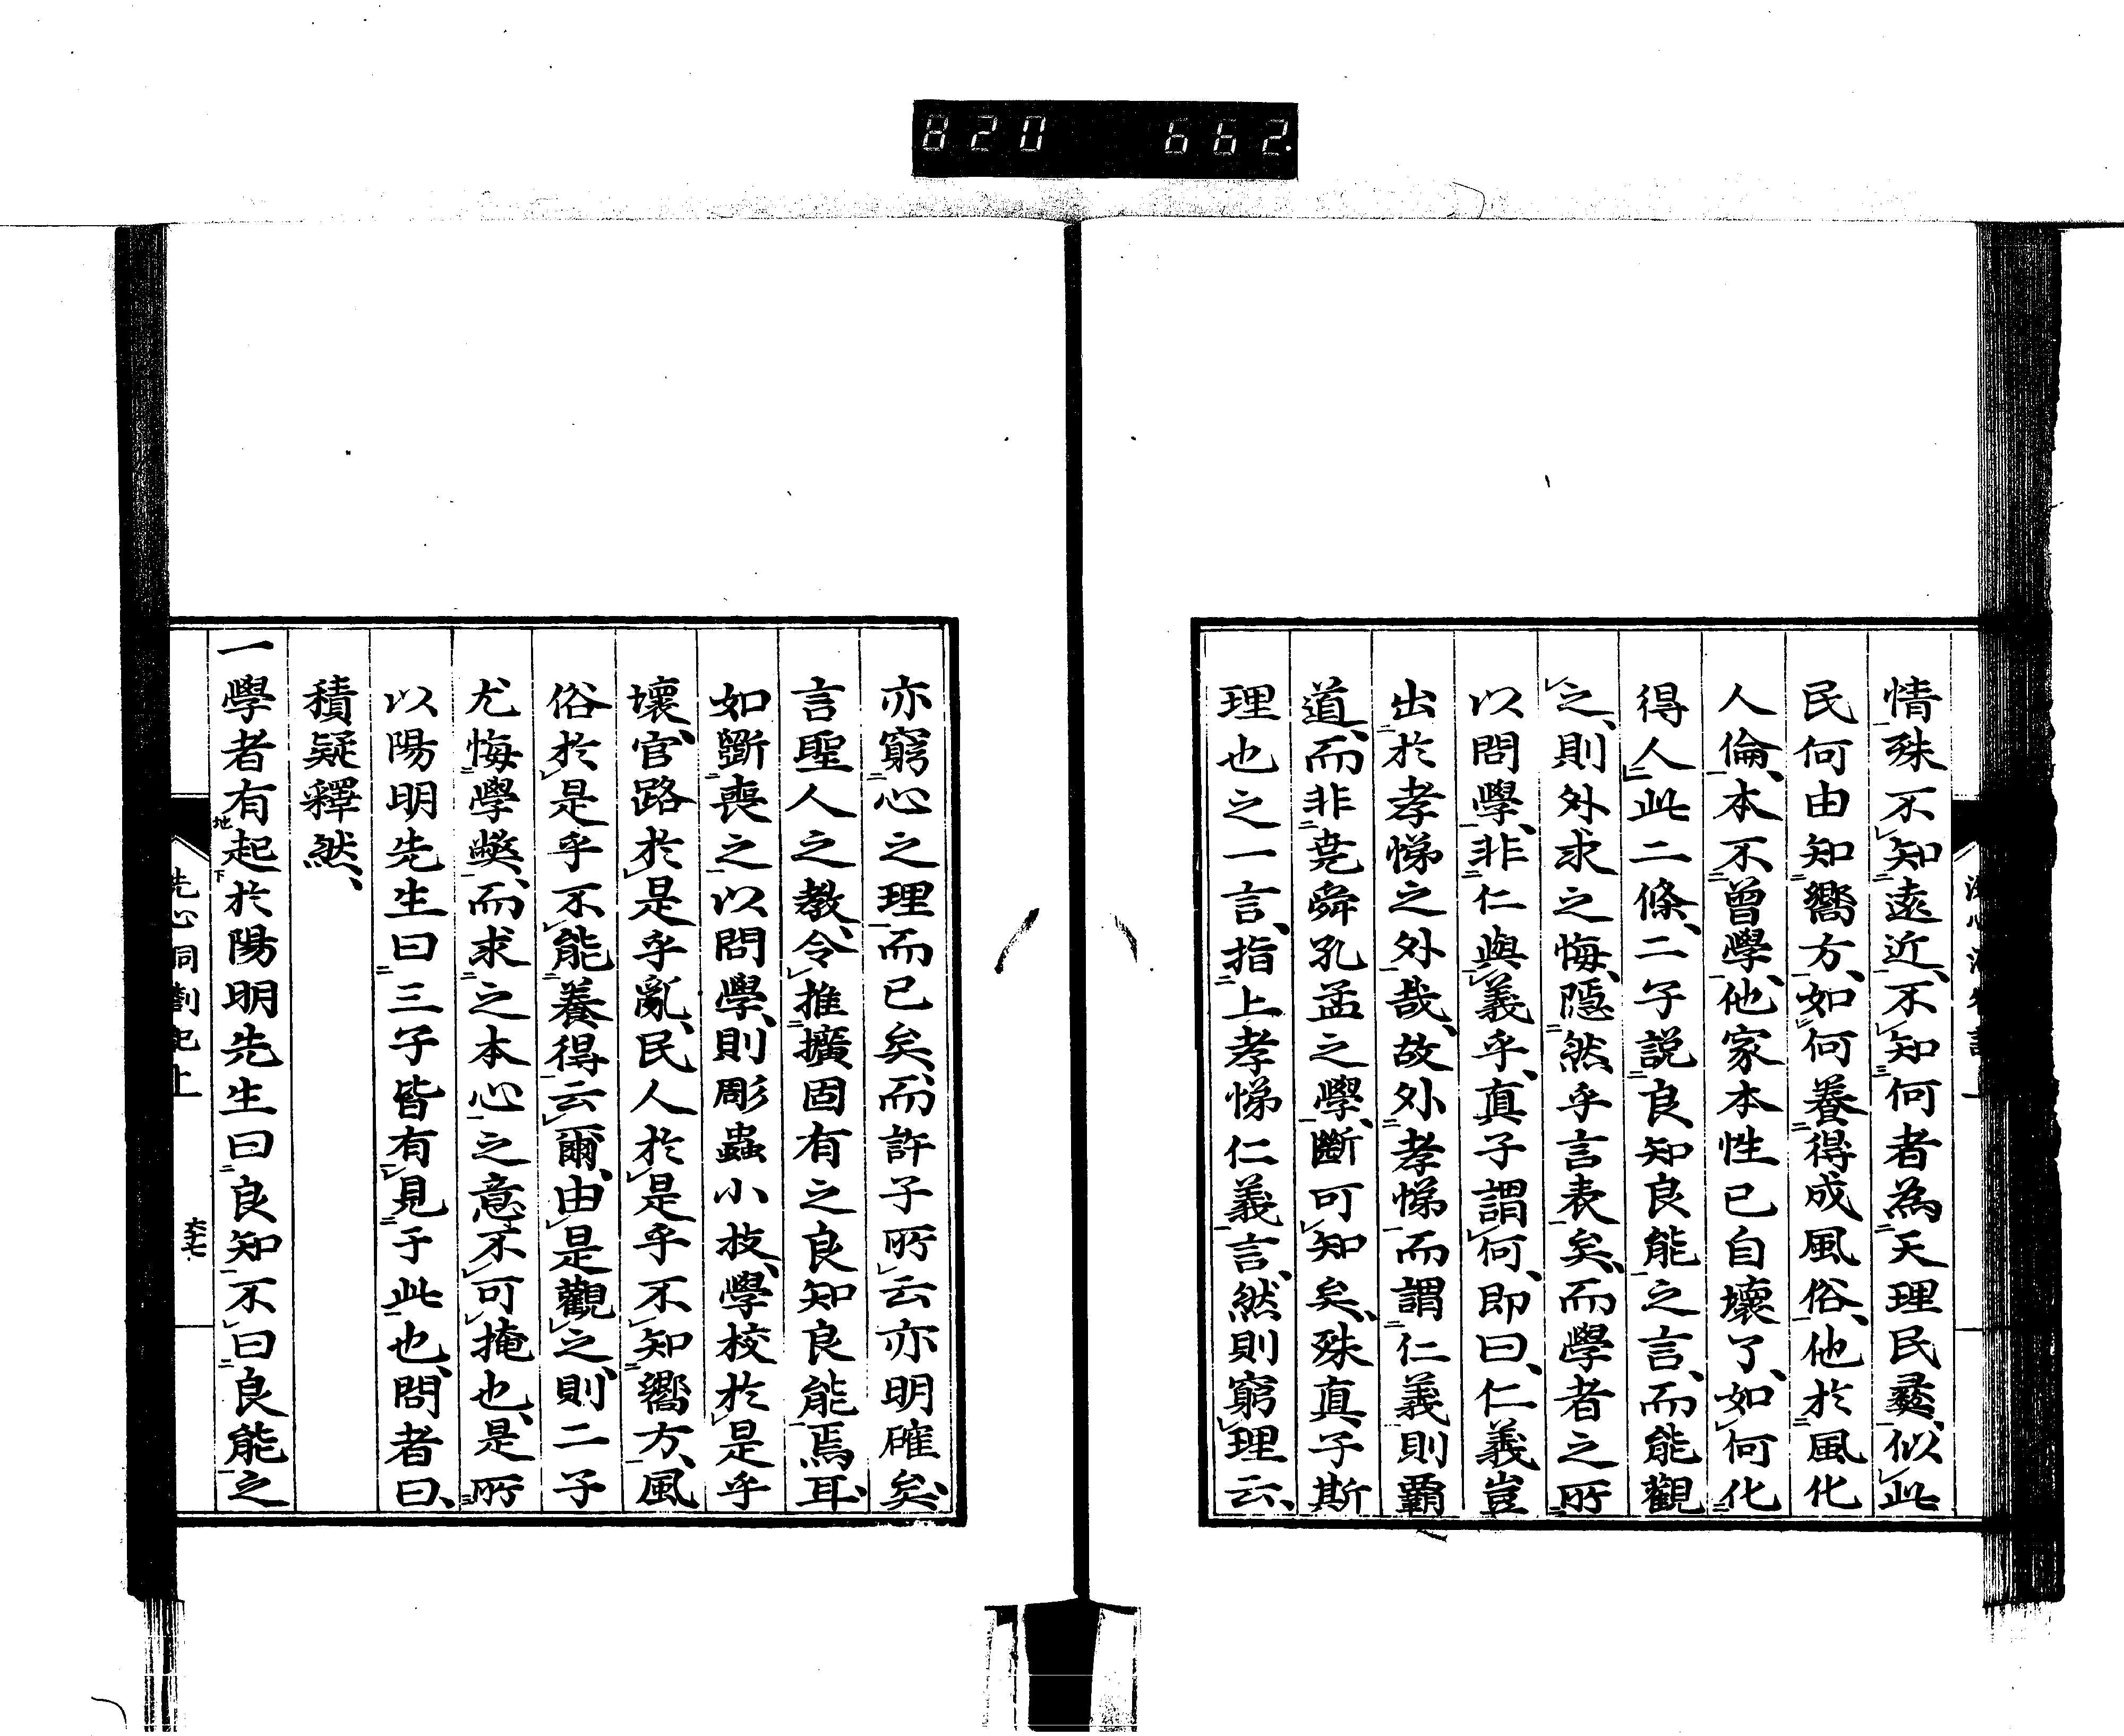 820 662.
情殊不知遠近、不知何者為天理民彝、似此
民何由知嚮方、如何養得成風俗、他於風化
人倫、本不曾學、他家本性已自壞了、如何化
得人、此二條、二子說良知良能之言、而能觀
之、則外求之悔、隱然乎言表矣、而學者之所
以問學、非仁與義乎、真子謂何、即曰、仁義豈
出於孝悌之外哉、故外孝悌而謂仁義則霸
道、而非堯舜孔孟之學、斷可知矣、殊真子斯
理也之一言、指上孝悌仁義言、然則窮理云、
亦窮心之理而已矣、而許子所云亦明確矣、
言聖人之教、令推擴固有之良知良能焉耳、
如斲喪之以問學、則彫蟲小技、學校於是乎
壞、官路於是乎亂、民人於是乎不知嚮方、風
俗於是乎不能養得云爾、由是觀之、則二子
尤悔學獘、而求之本心之意不可掩也、是所
以陽明先生曰三子皆有見于此也、問者曰、
積疑釋然、
一學者有起於陽明先生曰良知不曰良能之
地 下
洗心洞劄記上
六十七